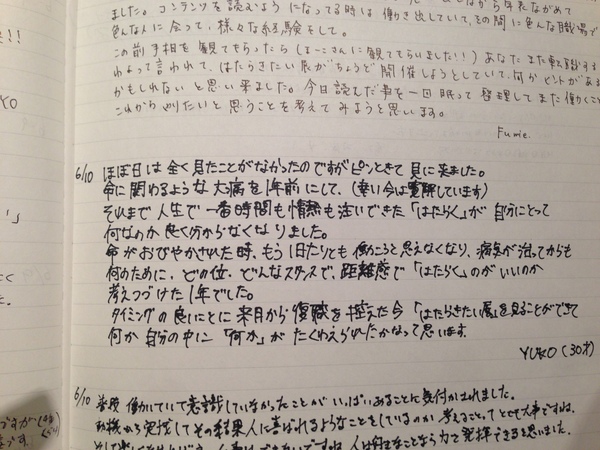 ました。コンテンツを読むようになってる時は働き出していて、その間に色んな職場で
色んな人に会って、様々な経験をして。
この前手相を観てもらったら(まーこさんに観てもらいました!!)あなたまた転職する
わよって言われて、はたらきたい展がちょうど開催しようとしていて、何かヒントがある
かもしれないと思い来ました。今日読んだ事を一回眠って整理してまた働くこと
これからやりたいと思うことを考えてみようと思います。
Fumie.
6/10 ほぼ日は全く見たことがなかったのですがピンときて見に来ました。
命に関わるような大病を1年前にして、(幸い今は寛解しています)
それまで人生で一番時間も情熱も注いできた「はたらく」が自分にとって
何なのか良く分からなくなりました。
命がおびやかされた時、もう1日たりとも働こうと思えなくなり、病気が治ってからも
何のために、どの位、どんなスタンスで、距離感で「はたらく」のがいいのか
考えつづけた1年でした。
タイミングの良いことに来月から復職を控えた今「はたらきたい展」を見ることができて
何か自分の中に「何か」がたくわえられたかなって思います。
YUKO (30才)
6/10 普段働いていて意識していなかったことがいっぱいあることに気付かされました。
動機から実践してその結果人に喜ばれるようなことをしているのか考えることってとても大事ですね。